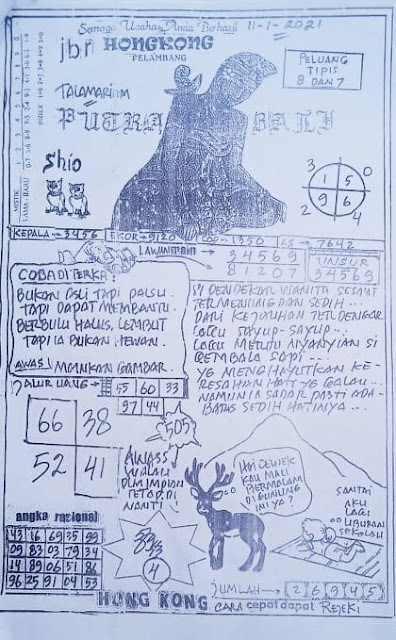 Semoga Usaha Anda Berhasil 11-1-2021
jbr HONGKONG
PELAMBANG
PELUANG
TIPIS
8 DAN 7
TALAMARIAM
PUTRA BALI
Shio
3 0
1 5
9 6
2 4
KEPALA → 3456 EKOR → 9120 COP → 1350 AS → 7642
LAWAN MAIN
34569
81207
UNSUR
34569
COBA DI TERKA!
BUKAN ASLI TAPI PALSU.
TAPI DAPAT MEMBANTU.
BERBULU HALUS, LEMBUT
TAPI IA BUKAN HEWAN.
AWAS! MAINKAN GAMBAR.
17 PENDEKAR WANITA SESAAT
TERMENUNG DAN SEDIH...
DARI KEJAUHAN TERDENGAR
LAGU SAYUP-SAYUP...
LAGU MERDU NYANYIAN SI
GEMBALA SAPI...
YG MENGHANYUTKAN KE-
RESAHAN HATI YG GALAU...
NAMUN IA SADAR PASTI ADA-
BATAS SEDIH HATINYA...
JALUR UANG → 55 60 33
97 44
66 38
52 41
505
AWASS
WALAU
DLM IMPIAN
TETAP DI
NANTI!
HAI CEWEK
KAU MAU
BERMALAM
DI GUNUNG
INI YA?
SANTAI
AKU
LAGI
LIBURAN
SEKOLAH
angka rasional
43 16 69 35 99
09 83 03 79 34
14 89 06 51 86
96 25 91 04 53
4
JUMLAH → 2 6 9 4 5
HONG KONG CARA cepat dapat REJEKI